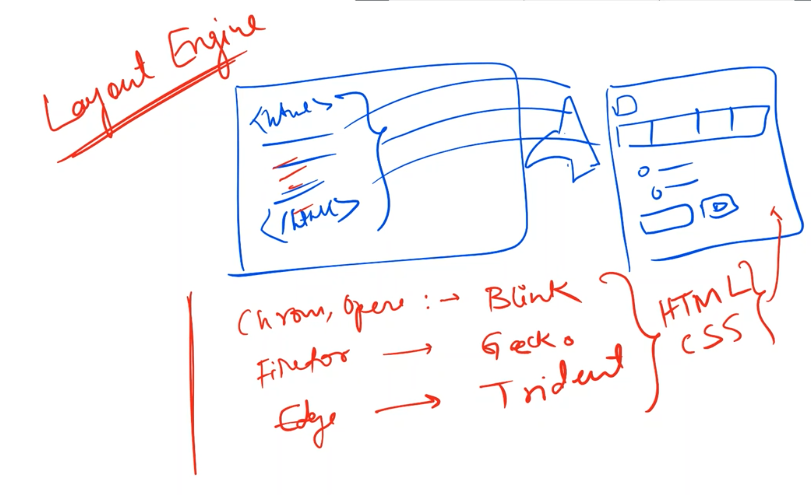 Layout Engine
<html>
</html>
Chrom, Opera :→ Blink
Firefox → Gecko
Edge → Trident
HTML
CSS